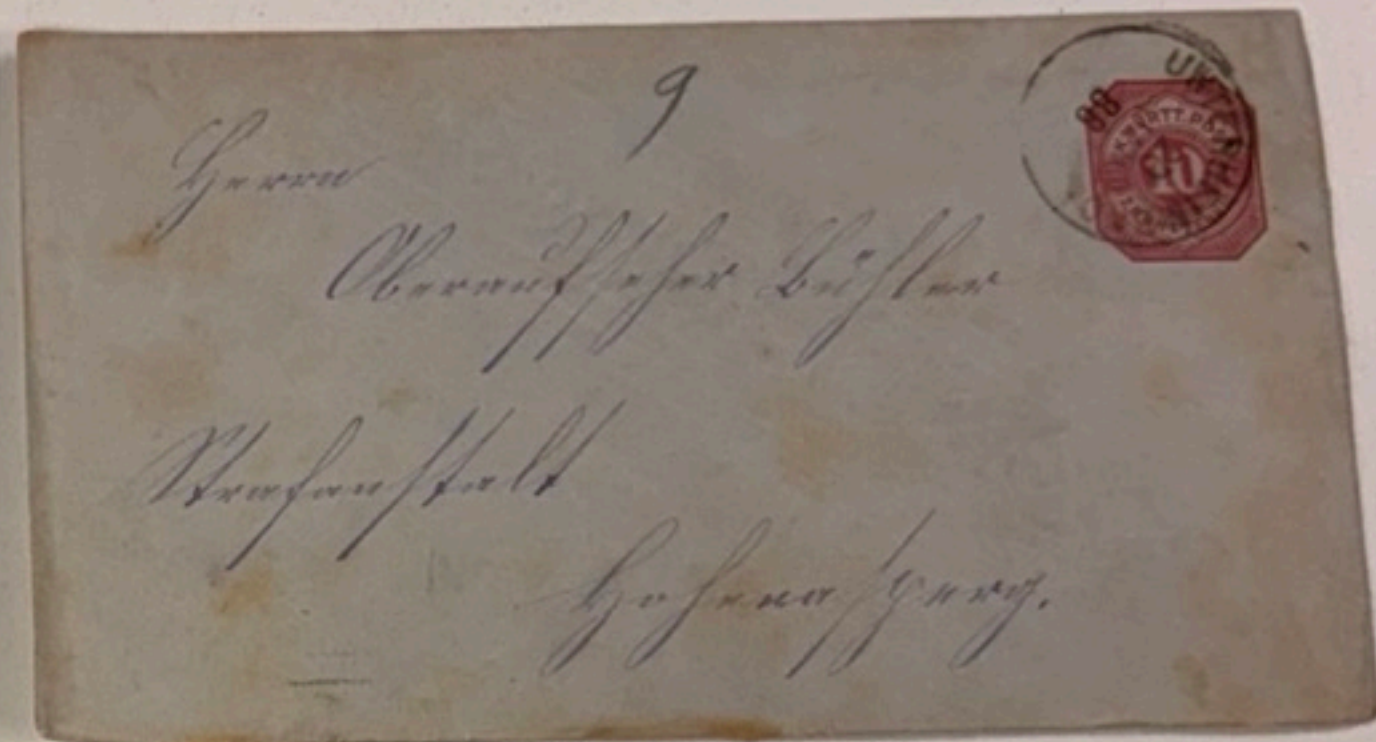 9
Herrn
Oberaufseher Bühler
Strafanstalt
Hohenasperg.
88
10